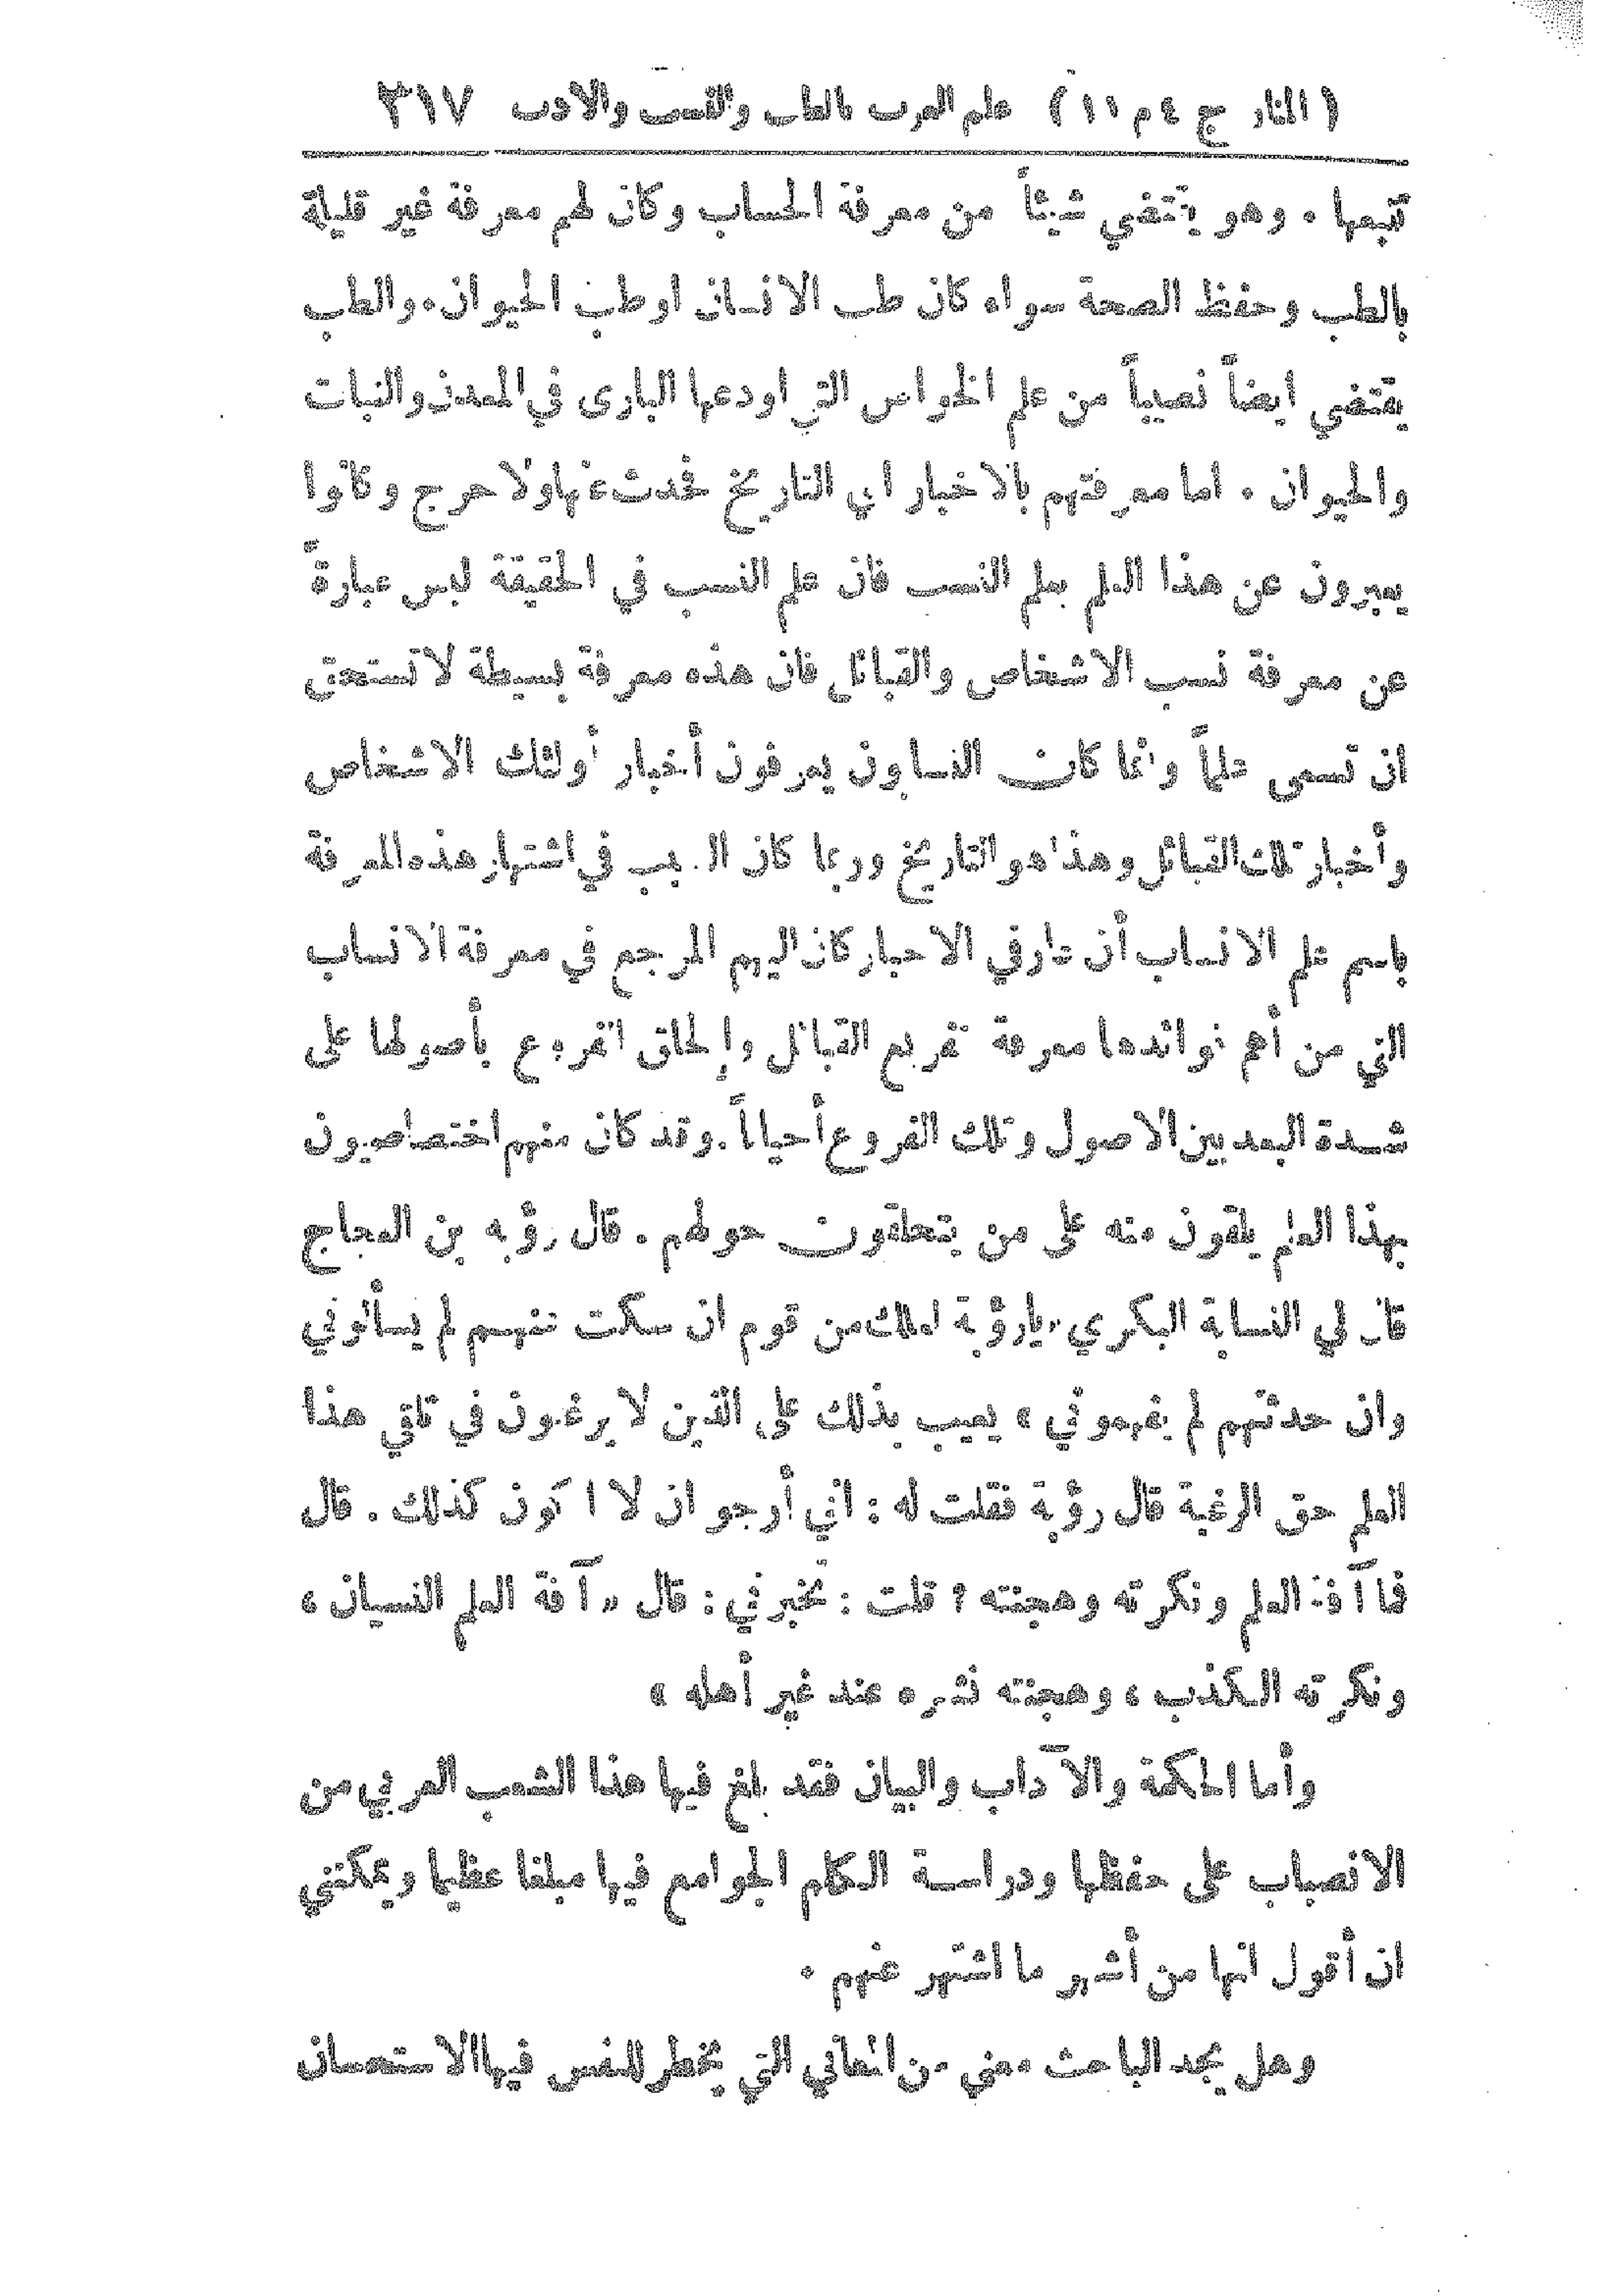 ( المنار ج ٤ م ١١ ) علم العرب بالطب والنسب والادب ٣١٧
تتبعها . وهو يقتضي شيئاً من معرفة الحساب وكان لهم معرفة غير قليلة
بالطب وحفظ الصحة سواء كان طب الانسان او طب الحيوان . والطب
يقتضي ايضاً نصيباً من علم الخواص التي اودعها الباري في المعدن والنبات
والحيوان . اما معرفتهم بالاخبار اي التاريخ فحدث عنها ولا حرج وكانوا
يعبرون عن هذا العلم بعلم النسب فان علم النسب في الحقيقة ليس عبارةً
عن معرفة نسب الاشخاص والقبائل فان هذه معرفة بسيطة لا تستحق
ان تسمى علماً وانما كان النسابون يعرفون أخبار أولئك الاشخاص
وأخبار تلك القبائل وهذا هو التاريخ وربما كان السبب في اشتهار هذه المعرفة
باسم علم الانساب أن عارفي الاخبار كان اليهم المرجع في معرفة الانساب
التي من أهم فوائدها معرفة تفريع القبائل وإلحاق الفروع بأصولها على
شدة البعد بين الاصول وتلك الفروع أحياناً . وقد كان منهم اختصاصيون
بهذا العلم يلقون منه على من يتحلقون حولهم . قال رؤبه بن العجاج
قال لي النسابة البكري « يارؤبة لعلك من قوم ان سكت عنهم لم يسألوني
وان حدثتهم لم يفهموني » يعيب بذلك على الذين لا يرغبون في تلقي هذا
العلم حق الرغبة قال رؤبة فقلت له : اني أرجو ان لا اكون كذلك . قال
فما آفة العلم ونكرته وهجنته ؟ قلت : تخبرني : قال « آفة العلم النسيان ،
ونكرته الكذب ، وهجنته نشره عند غير أهله »
وأما الحكمة والآداب والبيان فقد بلغ فيها هذا الشعب العربي من
الانصباب على حفظها ودراسة الكلم الجوامع فيها مبلغا عظيما ويمكنني
ان أقول انها من أشهر ما اشتهر عنهم .
وهل يجد الباحث معنى من المعاني التي يخطر للنفس فيها الاستحسان